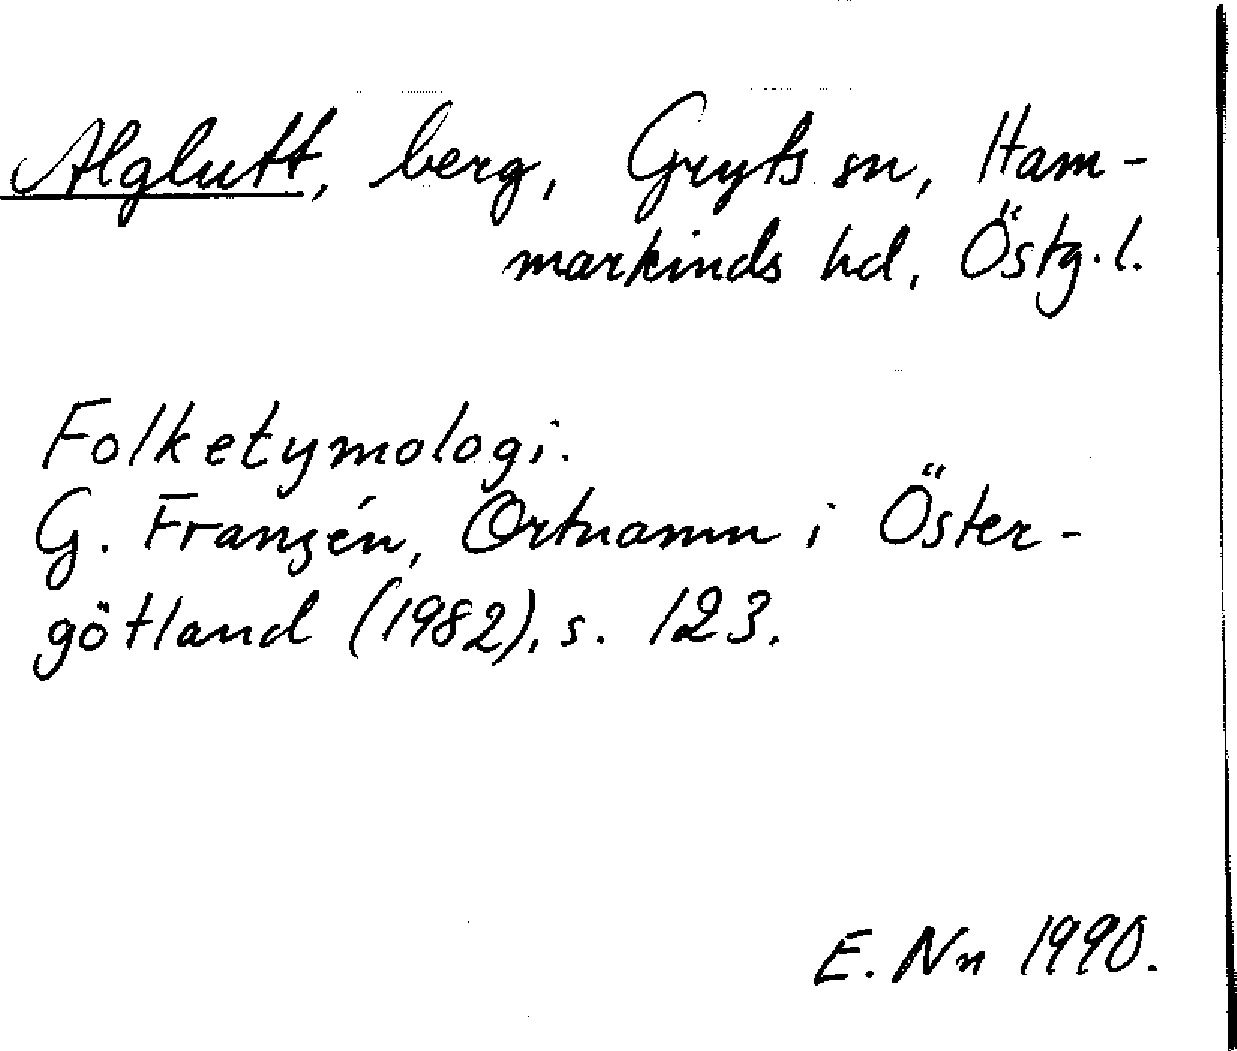 Alglutt, berg, Gryts sn, Ham-
markinds hd, Östg.l.
Folketymologi.
G. Franzén, Ortnamn i Öster-
götland (1982), s. 123.
E. Nn 1990.